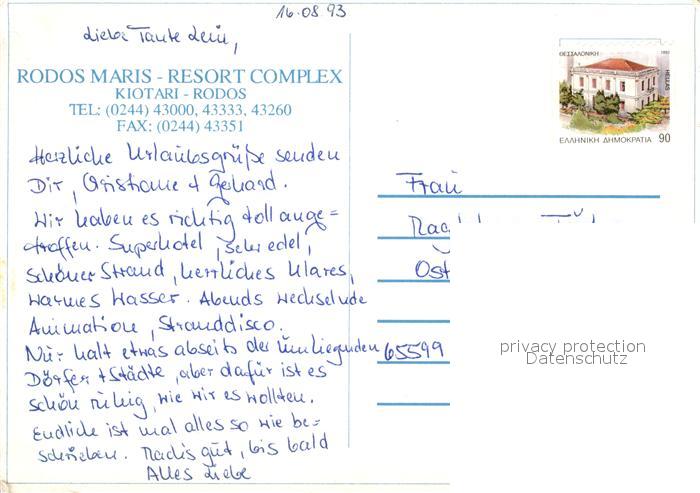 16.08.93
Liebe Tante Leni,
RODOS MARIS - RESORT COMPLEX
KIOTARI - RODOS
TEL: (0244) 43000, 43333, 43260
FAX: (0244) 43351
Herzliche Urlaubsgrüße senden
Dir, Christiane + Gehard.
Wir haben es richtig toll ange=
troffen. Superhotel, sehr edel,
schöner Strand, herrliches klares,
warmes Wasser. Abends wechselnde
Animation, Stranddisco.
Nur halt etwas abseits der umliegenden
Dörfer + Städte, aber dafür ist es
schön ruhig, wie wir es wollten.
Endlich ist mal alles so wie be-
schrieben. Machs gut, bis bald
Alles Liebe
ΘΕΣΣΑΛΟΝΙΚΗ 1992
HELLAS
ΕΛΛΗΝΙΚΗ ΔΗΜΟΚΡΑΤΙΑ 90
Frau
Ost
65599
privacy protection
Datenschutz